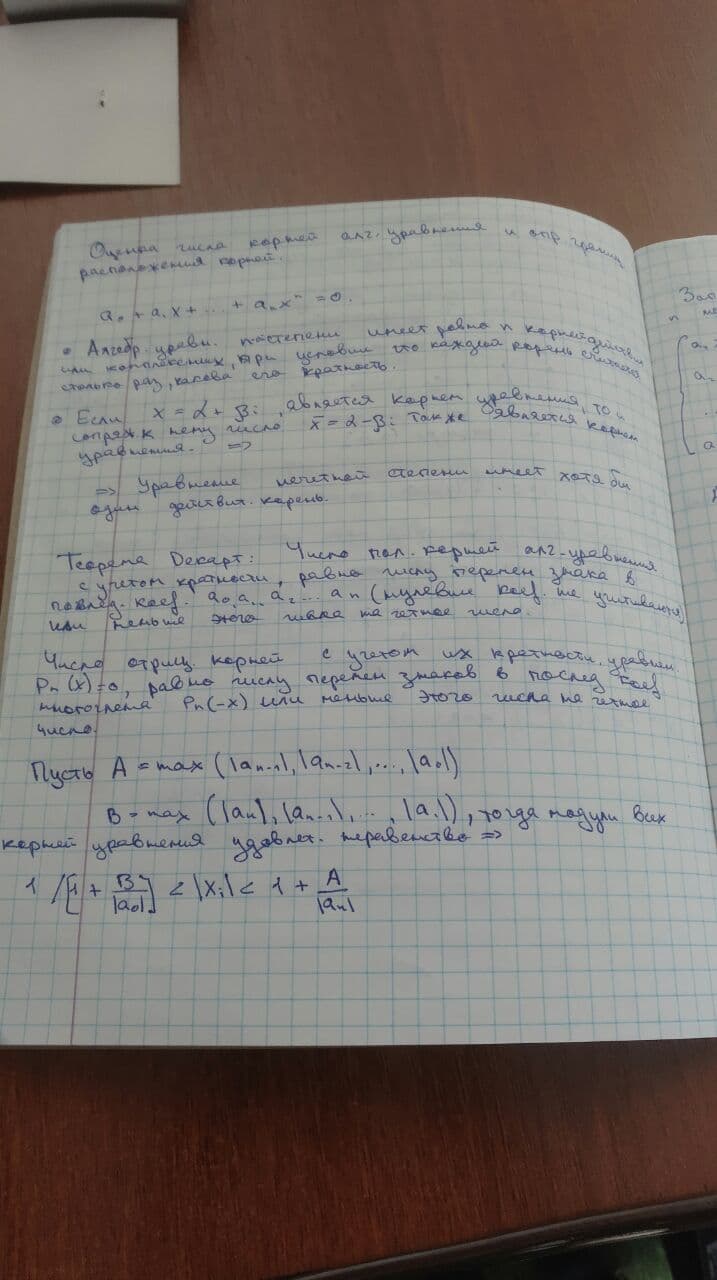 Оценка числа корней алг. уравнения и опр. границ
расположения корней.
a₀ + a₁x + ... + aₙxⁿ = 0.
• Алгебр. уравн. n степени имеет ровно n корней действит
или комплексных, при условии что каждый корень считается
столько раз, какова его кратность.
• Если x = α + βi, является корнем уравнения, то и
сопряж к нему число x = α - βi также является корнем
уравнения. =>
=> Уравнение нечетной степени имеет хотя бы
один действит. корень.
Теорема Декарт: Число пол. корней алг-уравнения
с учетом кратности, равно числу перемен знака в
послед. коеф. a₀, a₁, a₂ ... aₙ (нулевые коеф. не учитываются)
или меньше этого числа на четное число.
Число отриц. корней с учетом их кратности, уравнен.
Pₙ(x)=0, равно числу перемен знаков в послед коеф
многочлена Pₙ(-x) или меньше этого числа на четное
число.
Пусть A = max (|aₙ₋₁|, |aₙ₋₂|, ..., |a₀|)
B = max (|aₙ|, |aₙ₋₁|, ..., |a₁|), тогда модули всех
корней уравнения удовлет. неравенство =>
1 / [1 + B/|a₀|] < |xᵢ| < 1 + A/|aₙ|
n
{ a₀
a₂